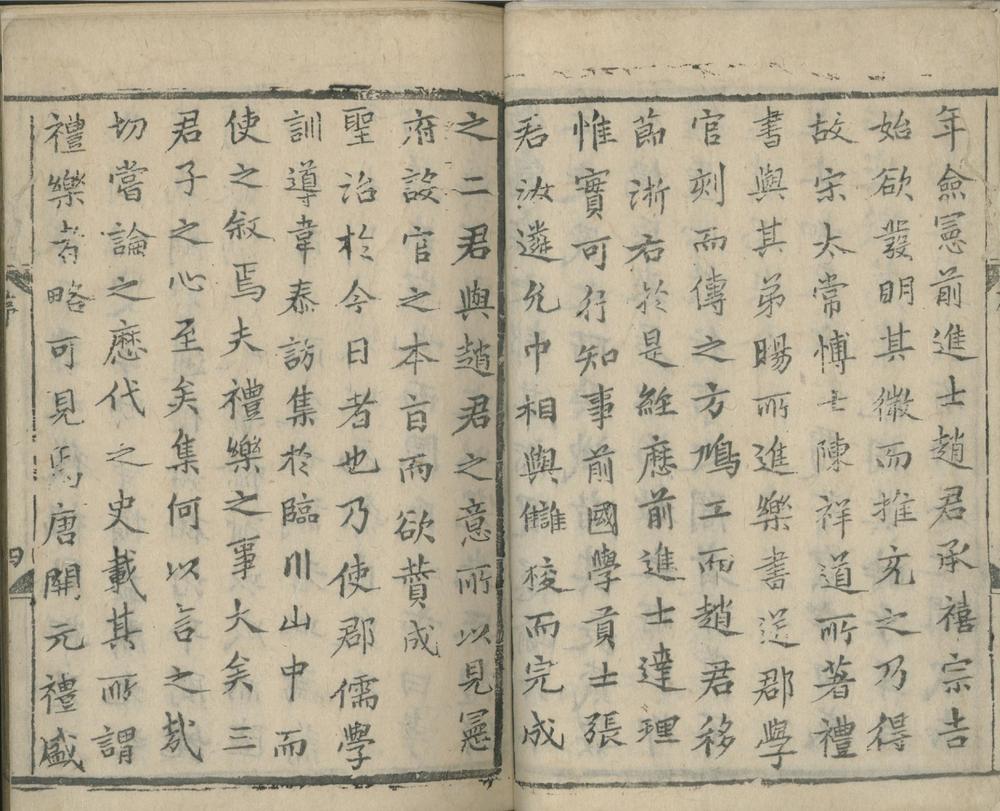 年僉憲前進士趙君承禧宗吉
始欲發明其微而推充之乃得
故宋太常博士陳祥道所著禮
書與其弟暘所進樂書送郡學
官刻而傳之方鳩工而趙君移
節浙右於是經歷前進士達理
惟實可行知事前國學貢士張
君汝遴允中相與讎梭而完成
之二君與趙君之意所以見憲
府設官之本㫖而欲賛成
聖治於今日者也乃使郡儒學
訓導韋泰訪集於臨川山中而
使之叙焉夫禮樂之事大矣三
君子之心至矣集何以言之㢤
切嘗論之歷代之史載其所謂
禮樂者略可見焉唐開元禮盛
序
四